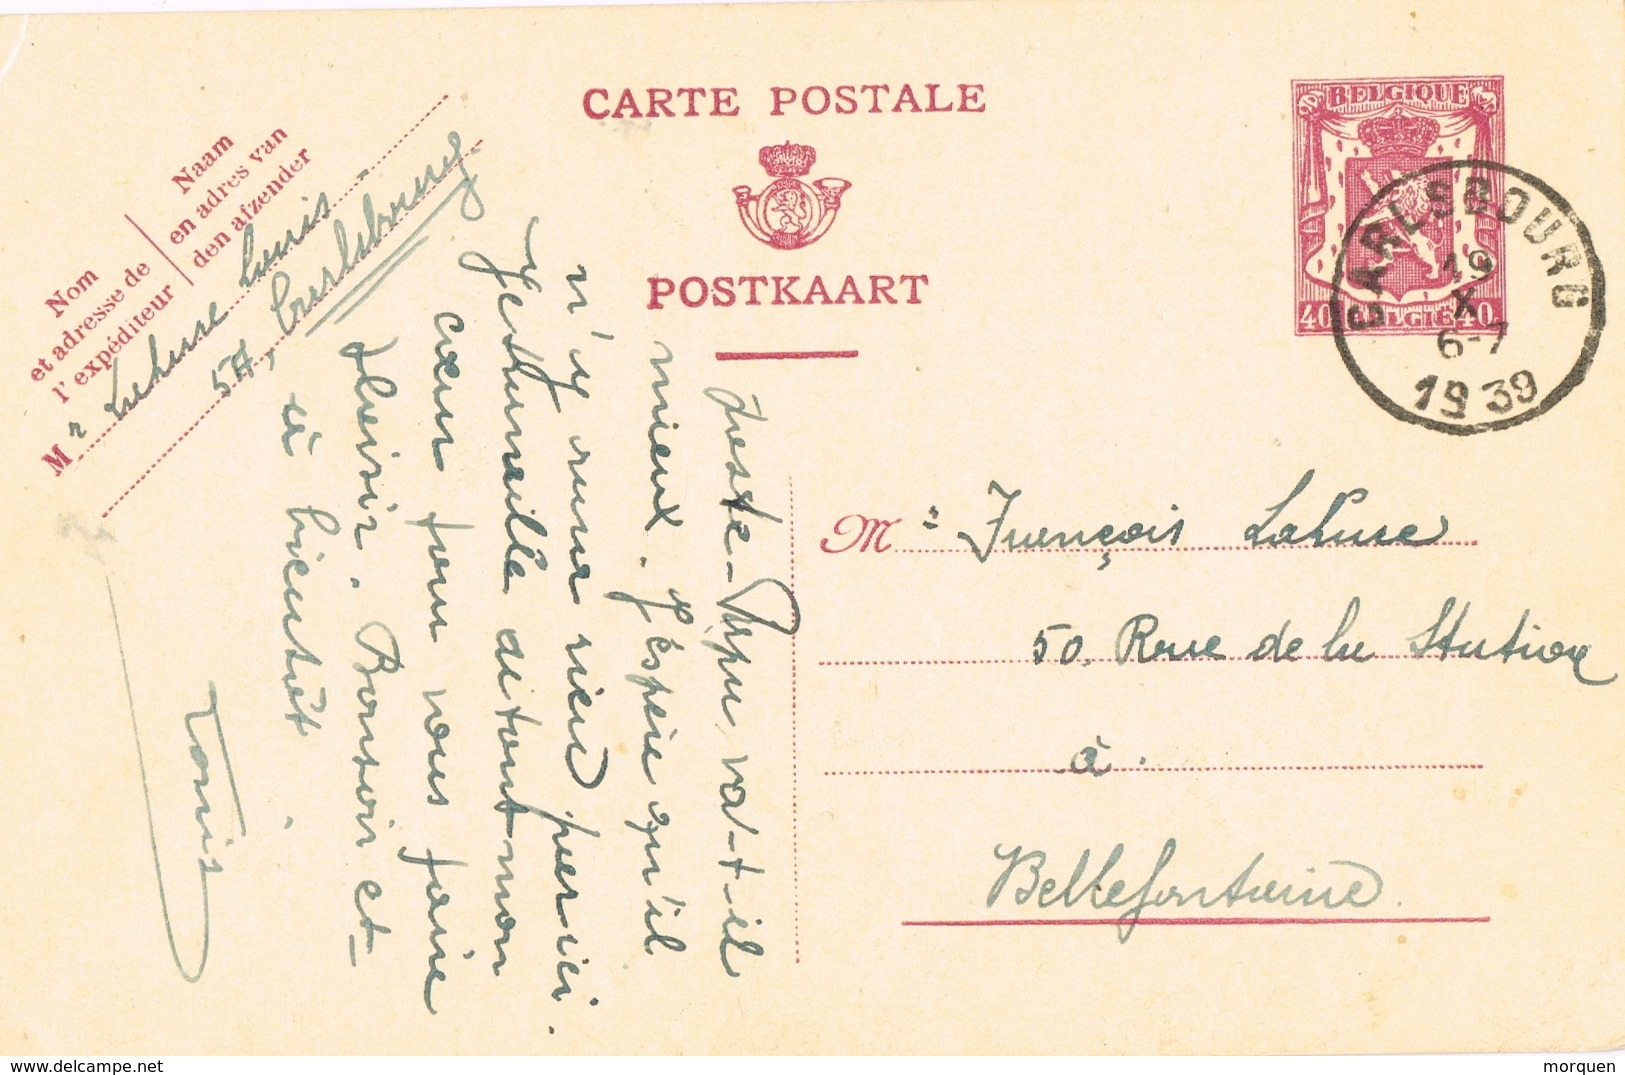 CARTE POSTALE
POSTKAART
BELGIQUE
40 BELGIE 40
CARLSBOURG
19
X
6-7
1939
Naam
en adres van
den afzender
Nom
et adresse de
l'expéditeur
Mr Lahure Louis
5A, Carlsbourg
Mr François Lahure
50, Rue de la Station
à
Bellefontaine.
Poste-Papa va-t-il
mieux. J'espère qu'il
n'y aura rien par ici.
Je travaille de tout mon
cœur pour vous faire
plaisir. Bonsoir et
à bientôt.
Louis
www.delcampe.net
morquen